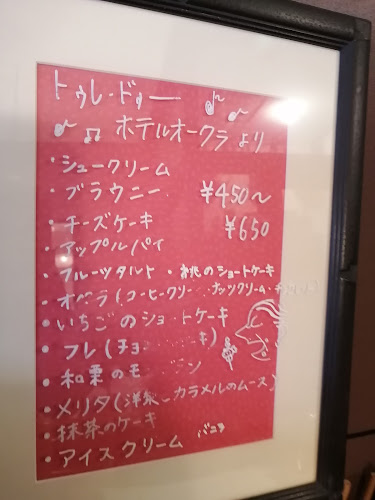 トゥレ・ドゥー
ホテルオークラより
・シュークリーム
・ブラウニー ¥450〜
・チーズケーキ ¥650
・アップルパイ
・フルーツタルト・桃のショートケーキ
・オペラ(コーヒークリー ナッツクリーム・
・いちごのショートケーキ
・フレ(チョ キ)
・和栗のモ ラン
・メリタ(洋梨 カラメルのムース)
・抹茶のケーキ
・アイスクリーム バニラ